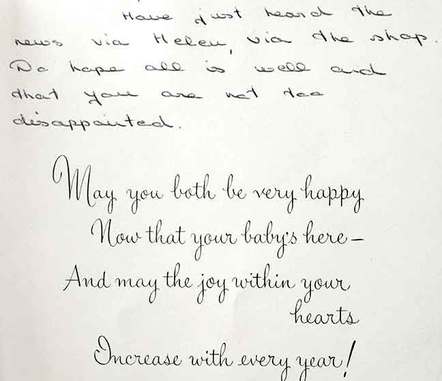 Have just heard the
news via Helen, via the shop.
Do hope all is well and
that you are not too
disappointed.
May you both be very happy
Now that your baby's here—
And may the joy within your
hearts
Increase with every year!